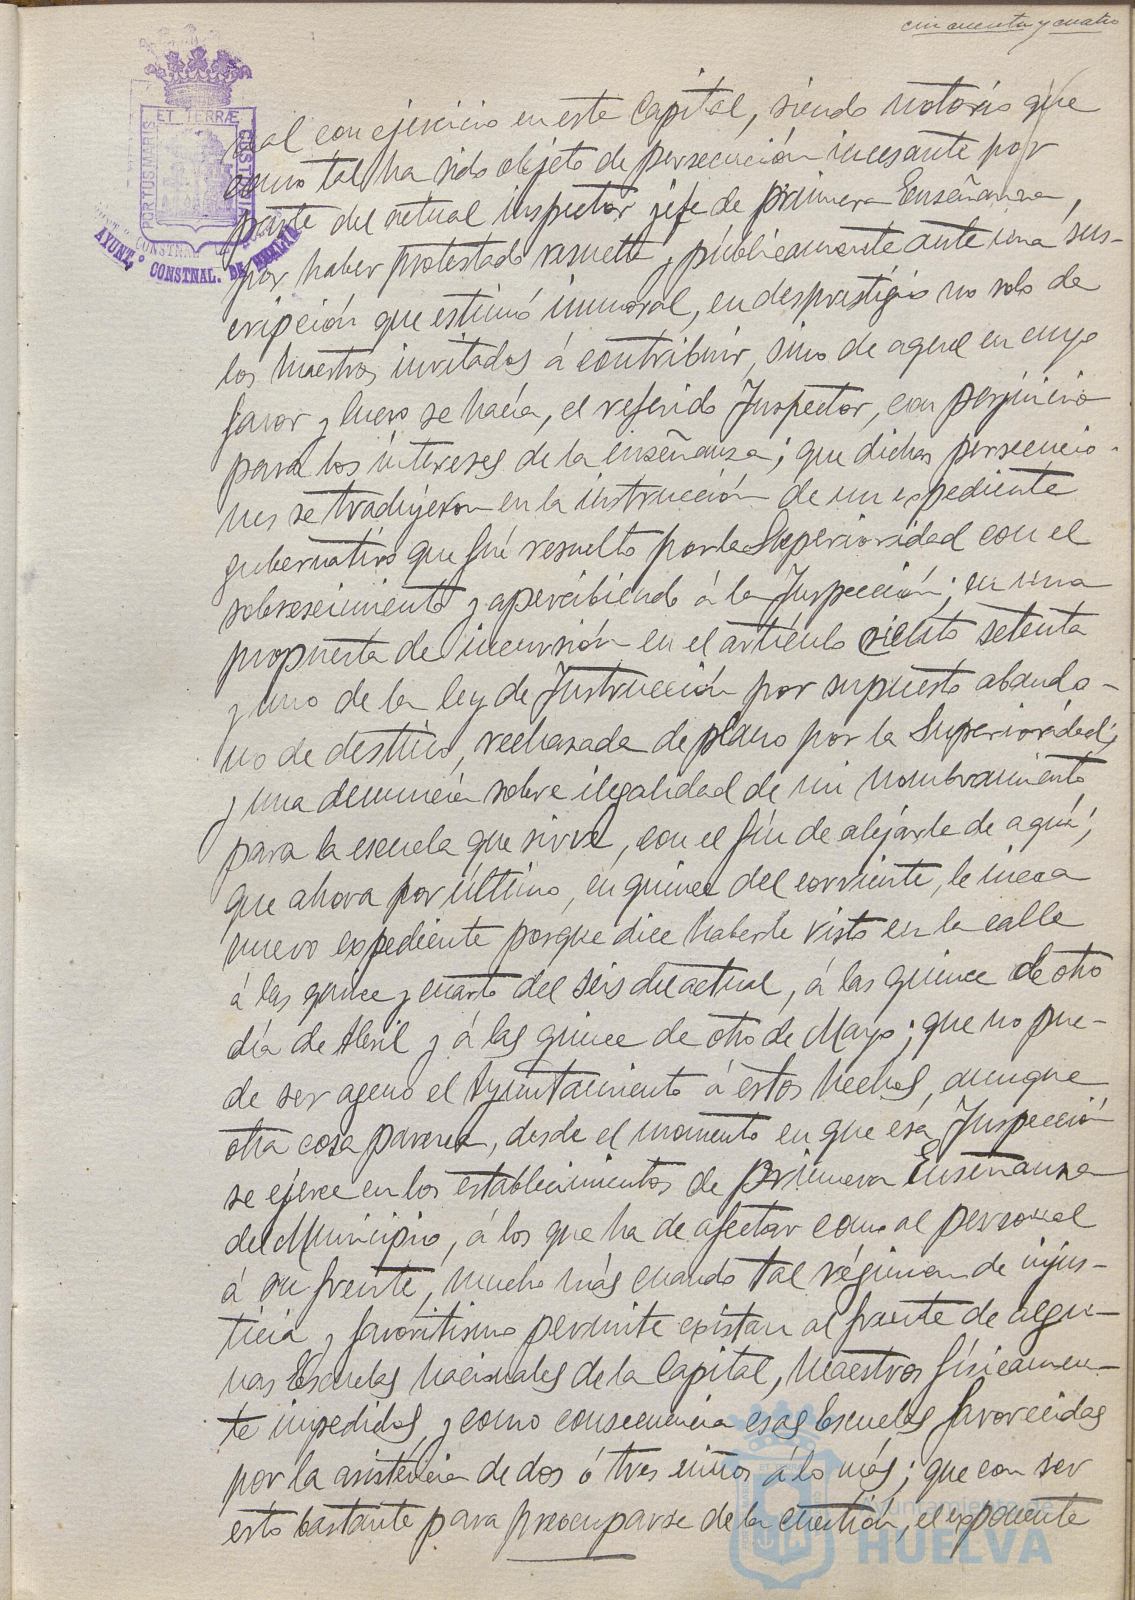 cincuenta y cuatro
nal con ejercicio en esta Capital, siendo notorio que
como tal ha sido objeto de persecución incesante por
parte del actual inspector jefe de primera Enseñanza,
por haber protestado resuelta y públicamente ante una sus-
cripción que estimó inmoral, en desprestigio no solo de
los maestros invitados á contribuir, sino de aquel en cuyo
favor y lucro se hacía, el referido Inspector, con perjuicio
para los intereses de la enseñanza; que dichas persecucio-
nes se tradujeron en la instrucción de un expediente
gubernativo que fué resuelto por la Superioridad con el
sobreseimiento y apercibiendo á la Inspección; en una
propuesta de incursión en el artículo ciento setenta
y uno de la ley de Instrucción por supuesto abando-
no de destino, rechazada de plano por la Superioridad;
y una denuncia sobre ilegalidad de un nombramiento
para la escuela que sirve, con el fin de alejarle de aquí;
que ahora por último, en quince del corriente, le incoa
nuevo expediente porque dice haberle visto en la calle
á las quince y cuarto del seis del actual, á las quince de otro
día de Abril y á las quince de otro de Mayo; que no pue-
de ser ageno el Ayuntamiento á estos hechos, aunque
otra cosa parezca, desde el momento en que esa Inspección
se ejerce en los establecimientos de primera Enseñanza
del Municipio, á los que ha de afectar como al personal
á su frente, mucho más cuando tal régimen de injus-
ticia y favoritismo permite existan al frente de algu-
nas Escuelas nacionales de la Capital, maestros físicamen-
te impedidos, y como consecuencia esas Escuelas favorecidas
por la asistencia de dos ó tres niños á lo más; que con ser
esto bastante para preocuparse de la cuestión, el exponente
PORTUS MARIS
ET TERRÆ
CUSTODIA
AYUNT.º CONSTNAL. DE HUELVA
Ayuntamiento de
HUELVA